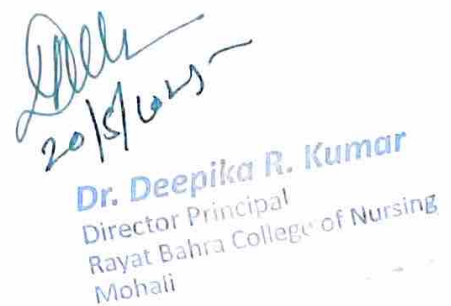 20/5/2025
Dr. Deepika R. Kumar
Director Principal
Rayat Bahra College of Nursing
Mohali